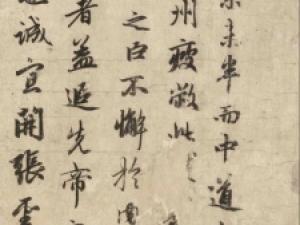 未半而中道
州疲敝此
之臣不懈於
者蓋追先帝
誠宜開張聖